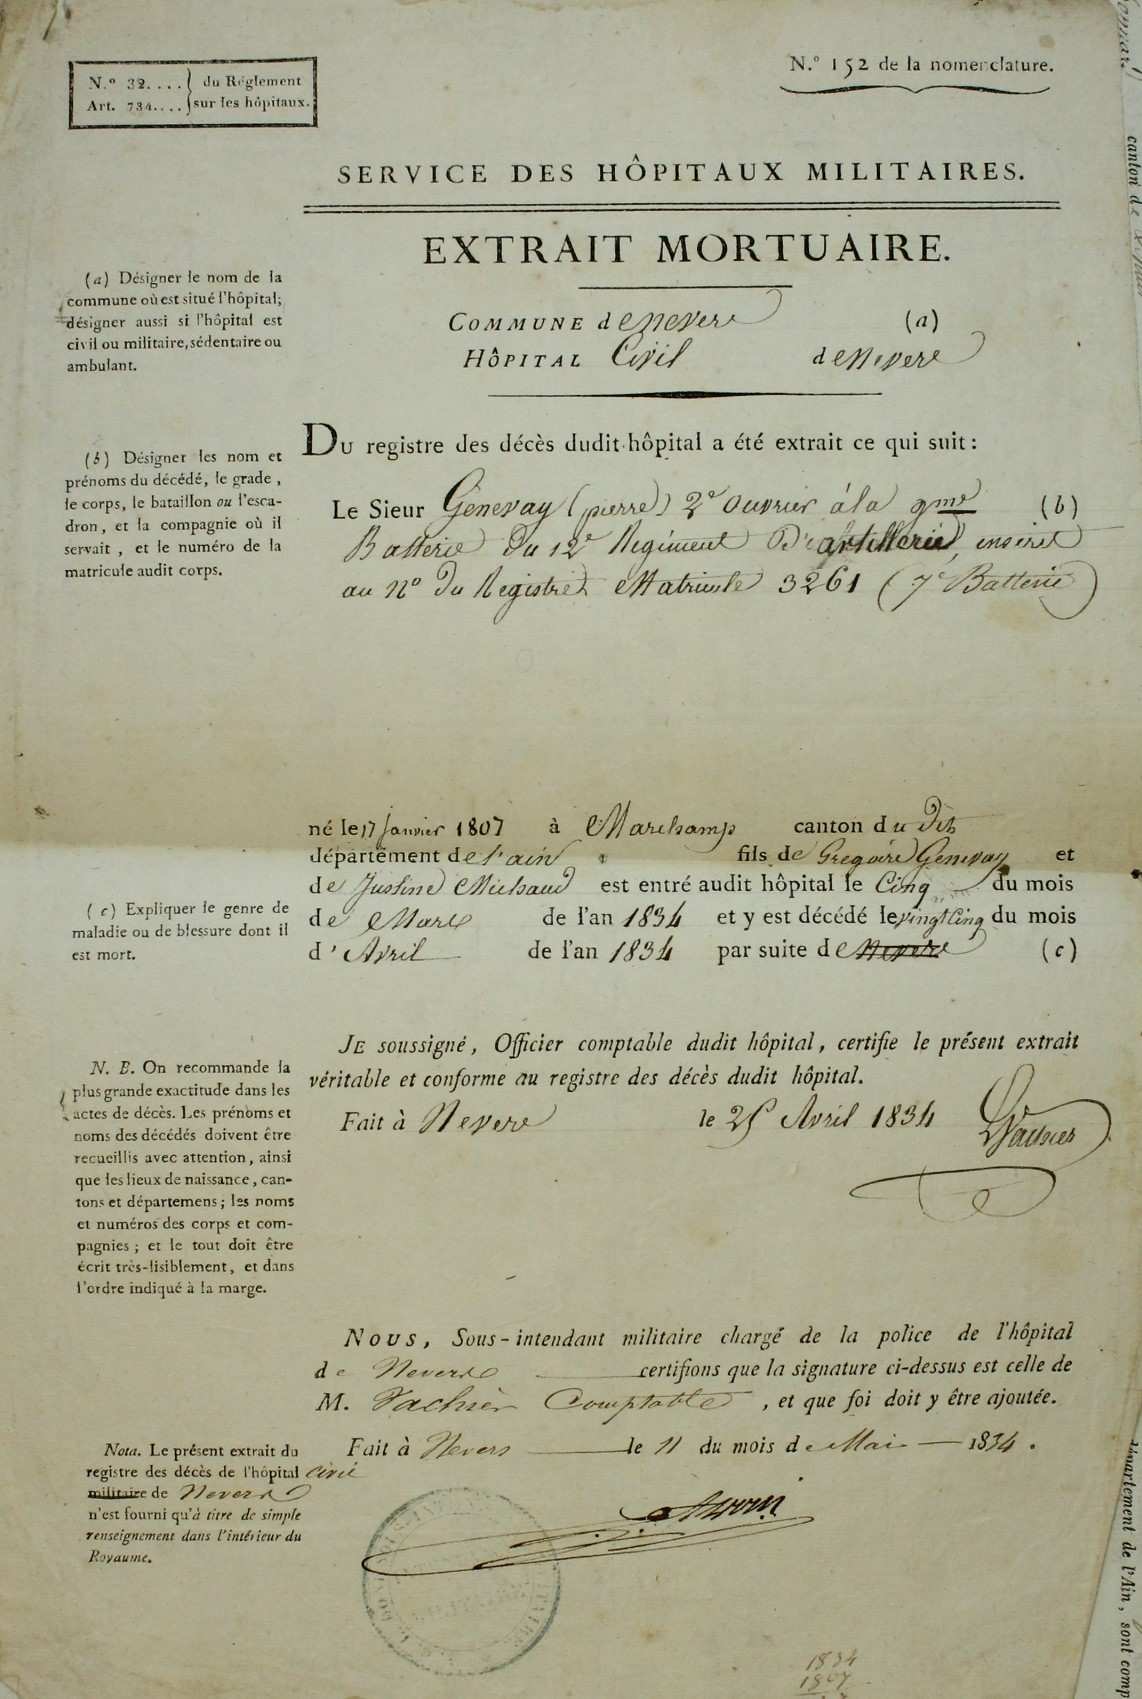 N.º 32.... du Réglement
Art. 734.... sur les hôpitaux.
N.º 152 de la nomenclature.
SERVICE DES HÔPITAUX MILITAIRES.
EXTRAIT MORTUAIRE.
COMMUNE de Nevers (a)
HÔPITAL Civil de Nevers
(a) Désigner le nom de la
commune où est situé l'hôpital;
désigner aussi si l'hôpital est
civil ou militaire, sédentaire ou
ambulant.
DU registre des décès dudit hôpital a été extrait ce qui suit:
(b) Désigner les nom et
prénoms du décédé, le grade,
le corps, le bataillon ou l'esca-
dron, et la compagnie où il
servait, et le numéro de la
matricule audit corps.
Le Sieur Genevay (pierre) 2e ouvrier à la 9me (b)
Batterie du 12e Régiment D'artillerie, inscrit
au No du Registre Matricule 3261 (7e Batterie)
né le 17 Janvier 1807 à Marchamp canton du dit
département de l'ain fils de Gregoire Genevay et
de Justine Michaud est entré audit hôpital le Cinq du mois
de Mars de l'an 1834 et y est décédé le vingt Cinq du mois
d'Avril de l'an 1834 par suite de Nevers (c)
(c) Expliquer le genre de
maladie ou de blessure dont il
est mort.
JE soussigné, Officier comptable dudit hôpital, certifie le présent extrait
véritable et conforme au registre des décès dudit hôpital.
Fait à Nevers le 25 Avril 1834
Vachier
N. B. On recommande la
plus grande exactitude dans les
actes de décès. Les prénoms et
noms des décédés doivent être
recueillis avec attention, ainsi
que les lieux de naissance, can-
tons et départemens; les noms
et numéros des corps et com-
pagnies; et le tout doit être
écrit très-lisiblement, et dans
l'ordre indiqué à la marge.
NOUS, Sous-intendant militaire chargé de la police de l'hôpital
de Nevers certifions que la signature ci-dessus est celle de
M. Vachier Comptable, et que foi doit y être ajoutée.
Fait à Nevers le 11 du mois de Mai 1834.
Nota. Le présent extrait du
registre des décès de l'hôpital civil
militaire de Nevers
n'est fourni qu'à titre de simple
renseignement dans l'intérieur du
Royaume.
1834
1807
canton de
département de l'Ain, sont comp